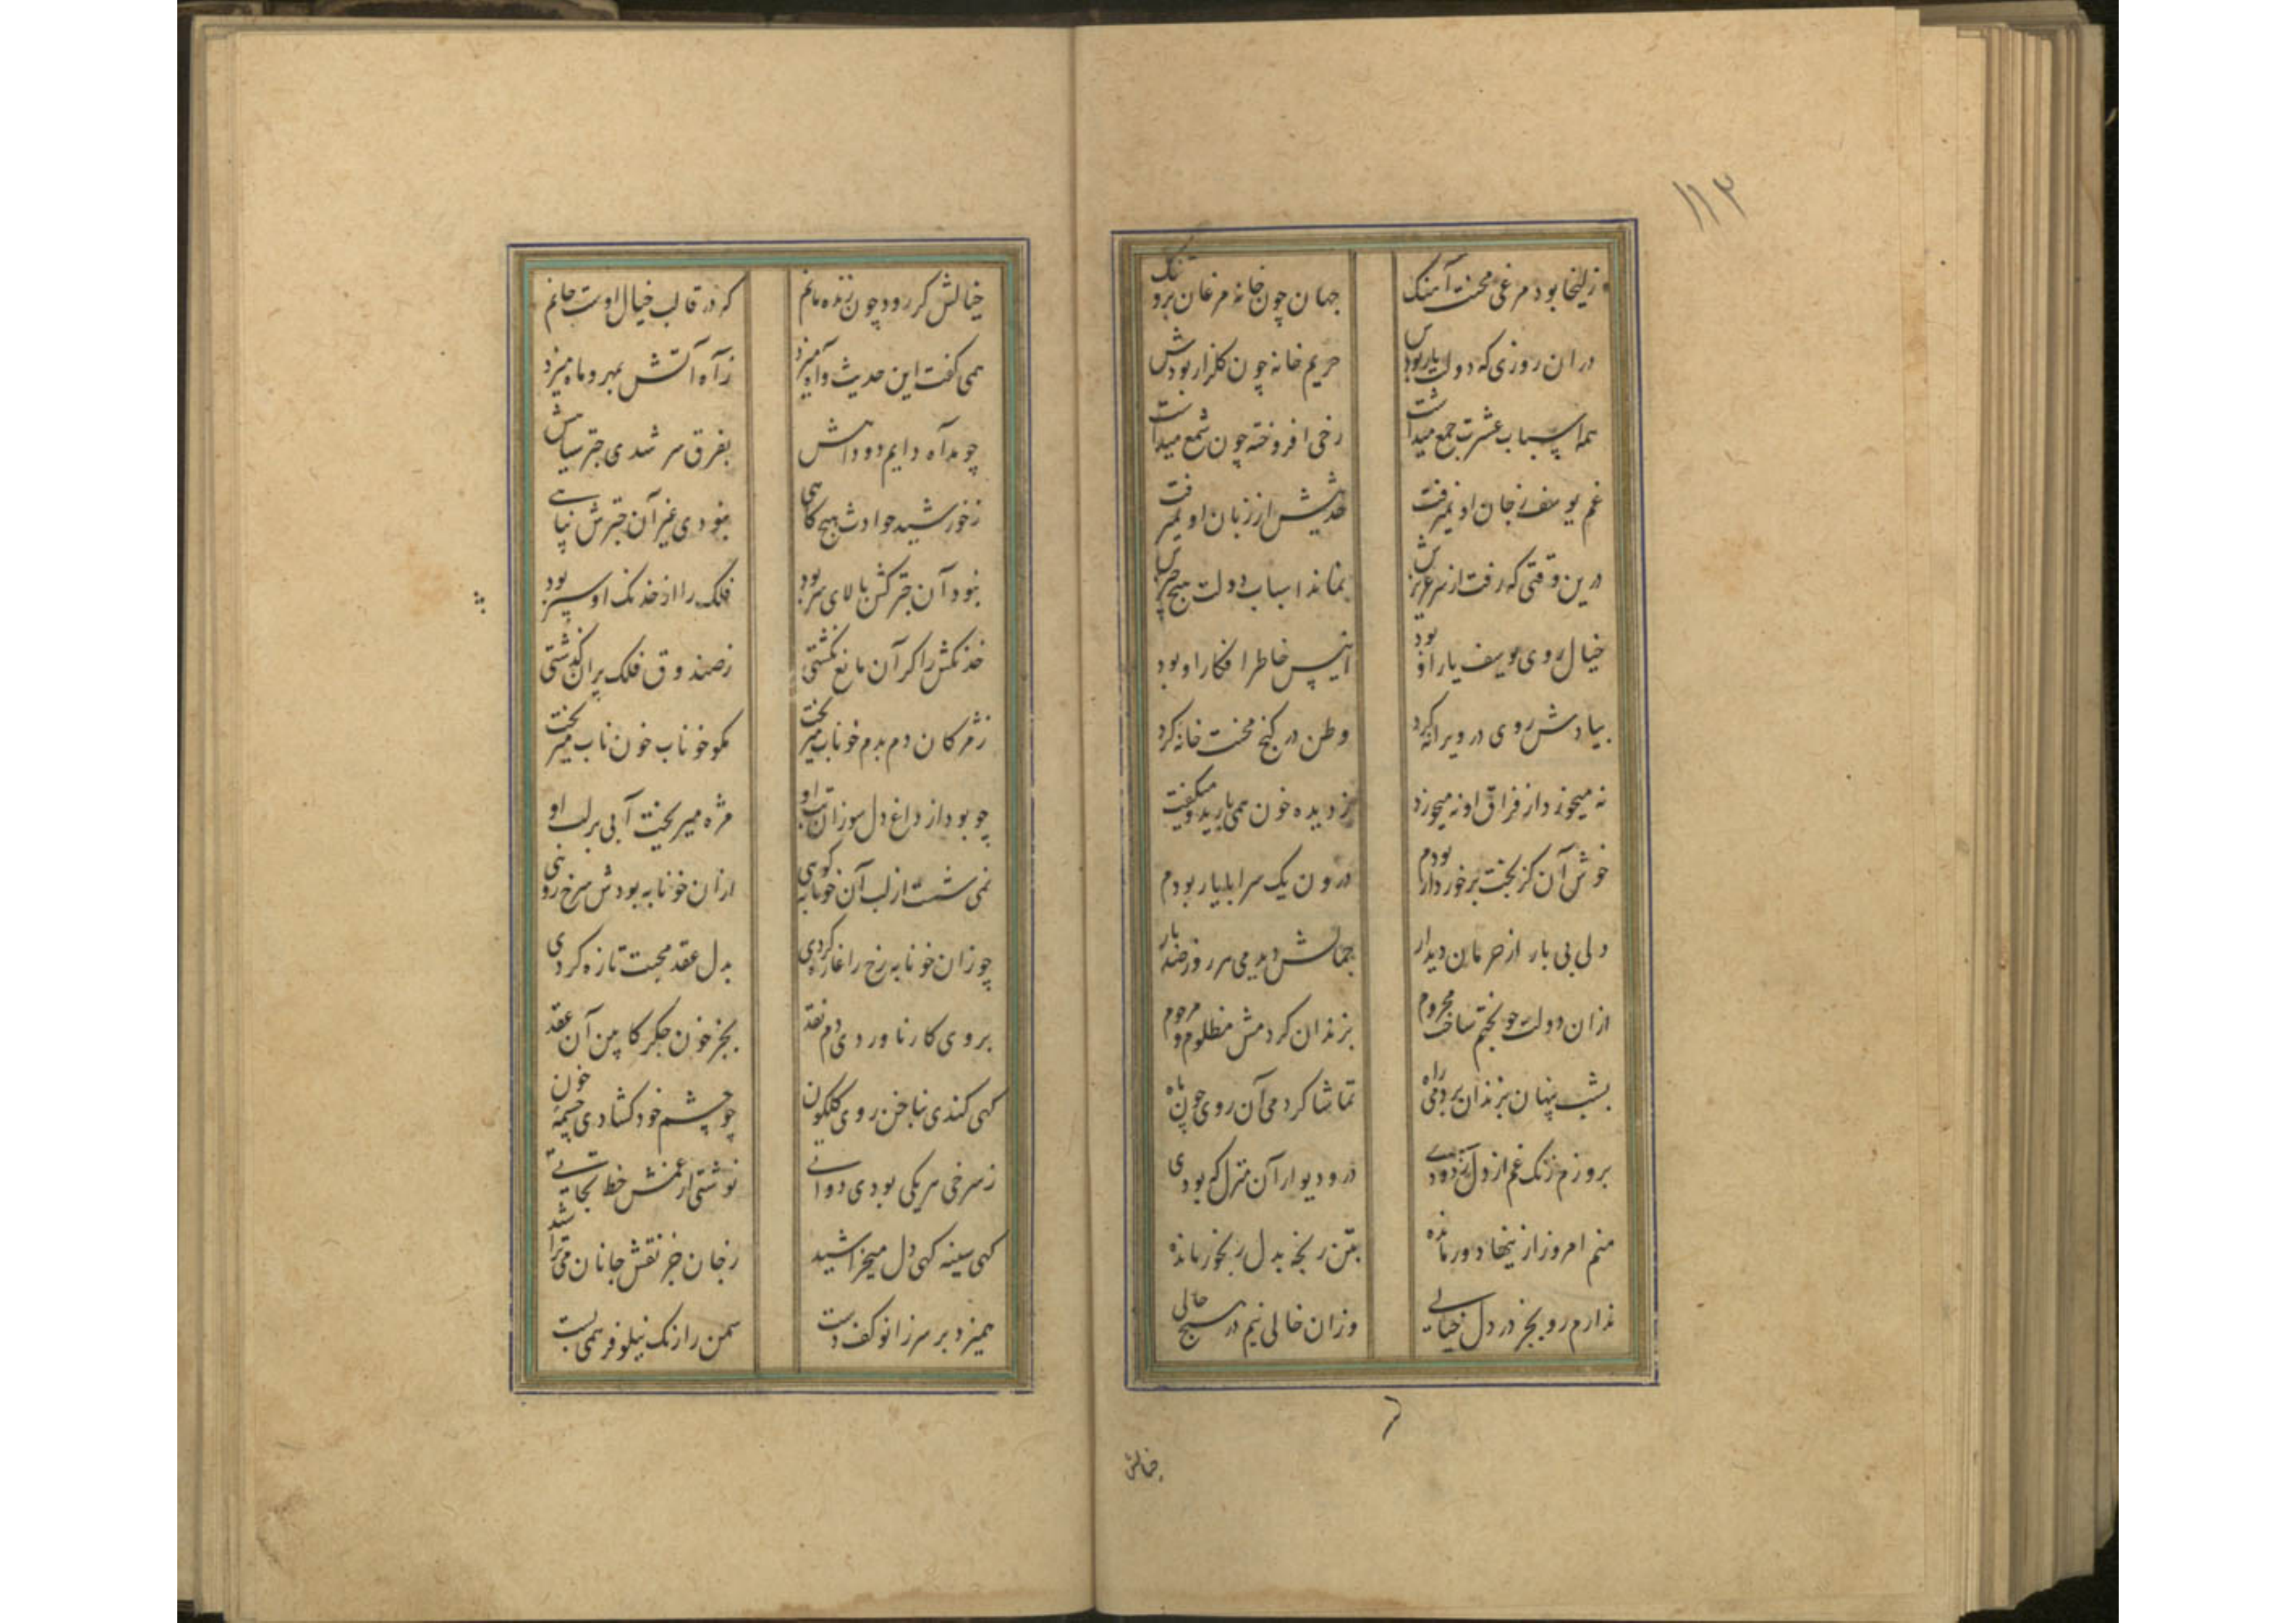 ۱۱۳
زلیخا بود مرغی محنت آهنک جهان چون خانه مرغان برو تنک
دران روزی که دولت یار بودش حریم خانه چون کلزار بودش
همه اسباب عشرت جمع میداشت رخی افروخته چون شمع میداشت
غم یوسف ز جان او نمیرفت حدیثش از زبان او نمیرفت
درین وقتی که رفت از سر عزیزش نماند اسباب دولت هیچ چیزش
خیال روی یوسف یار او بود انیس خاطر افکار او بود
بیادش روی در ویرانه کرد وطن در کنج محنت خانه کرد
نه میخورد از فراق او نه میخفت ز دیده خون همی بارید و میکفت
خوش آن کز بخت برخوردار بودم درون یک سرا با یار بودم
ولی بی بار از حرمان دیدار جمالش دیدمی هر روز صد بار
ازان دولت چو بختم ساخت محروم بزندان کردمش مظلوم و مرحوم
بشب پنهان بزندان بردمی راه تماشا کردمی آن روی چون ماه
بروزم زنک غم از دل زدودی در و دیوار آن منزل که بودی
منم امروز از ینها دور مانده بتن رنجه بدل رنجور مانده
ندارم رو بجز در دل خیالی وزان خالی نیم در هیچ حالی
خیالش
خیالش کر رود چون زنده مانم که در قالب خیال اوست جانم
همی کفت این حدیث و آه میزد ز آه آتش بمهر و ماه میزد
چو مد آه دایم دود آهش بفرق سر شدی چتر سیاهش
ز خورشید حوادث هیچ کاهی نبودی غیر آن چترش پناهی
نبود آن چتر کش بالای سر بود فلک را از خدنک او سپر بود
خدنکش را کر آن مانع نکشتی ز صندوق فلک پران کذشتی
ز مژکان دم بدم خوناب میریخت مکو خوناب خون ناب میریخت
چو بود از داغ دل سوزان تب او مژه میریخت آبی بر لب او
نمی شست از لب آن خونابه کوهی ازان خونابه بودش سرخ رویی
چو زان خونابه رخ را غازه کردی بدل عقد محبت تازه کردی
بروی کار ناوردی دم نقد بجز خون جکر کابین آن عقد
کهی کندی بناخن روی کلکون چو چشم خود کشادی چشمه خون
ز سرخی هر یکی بودی دواتی نوشتی از غمش خط نجاتی
کهی سینه کهی دل میخراشید ز جان جز نقش جانان می تراشید
همیزد بر سر زانو کف دست سمن را رنک نیلوفر همی بست